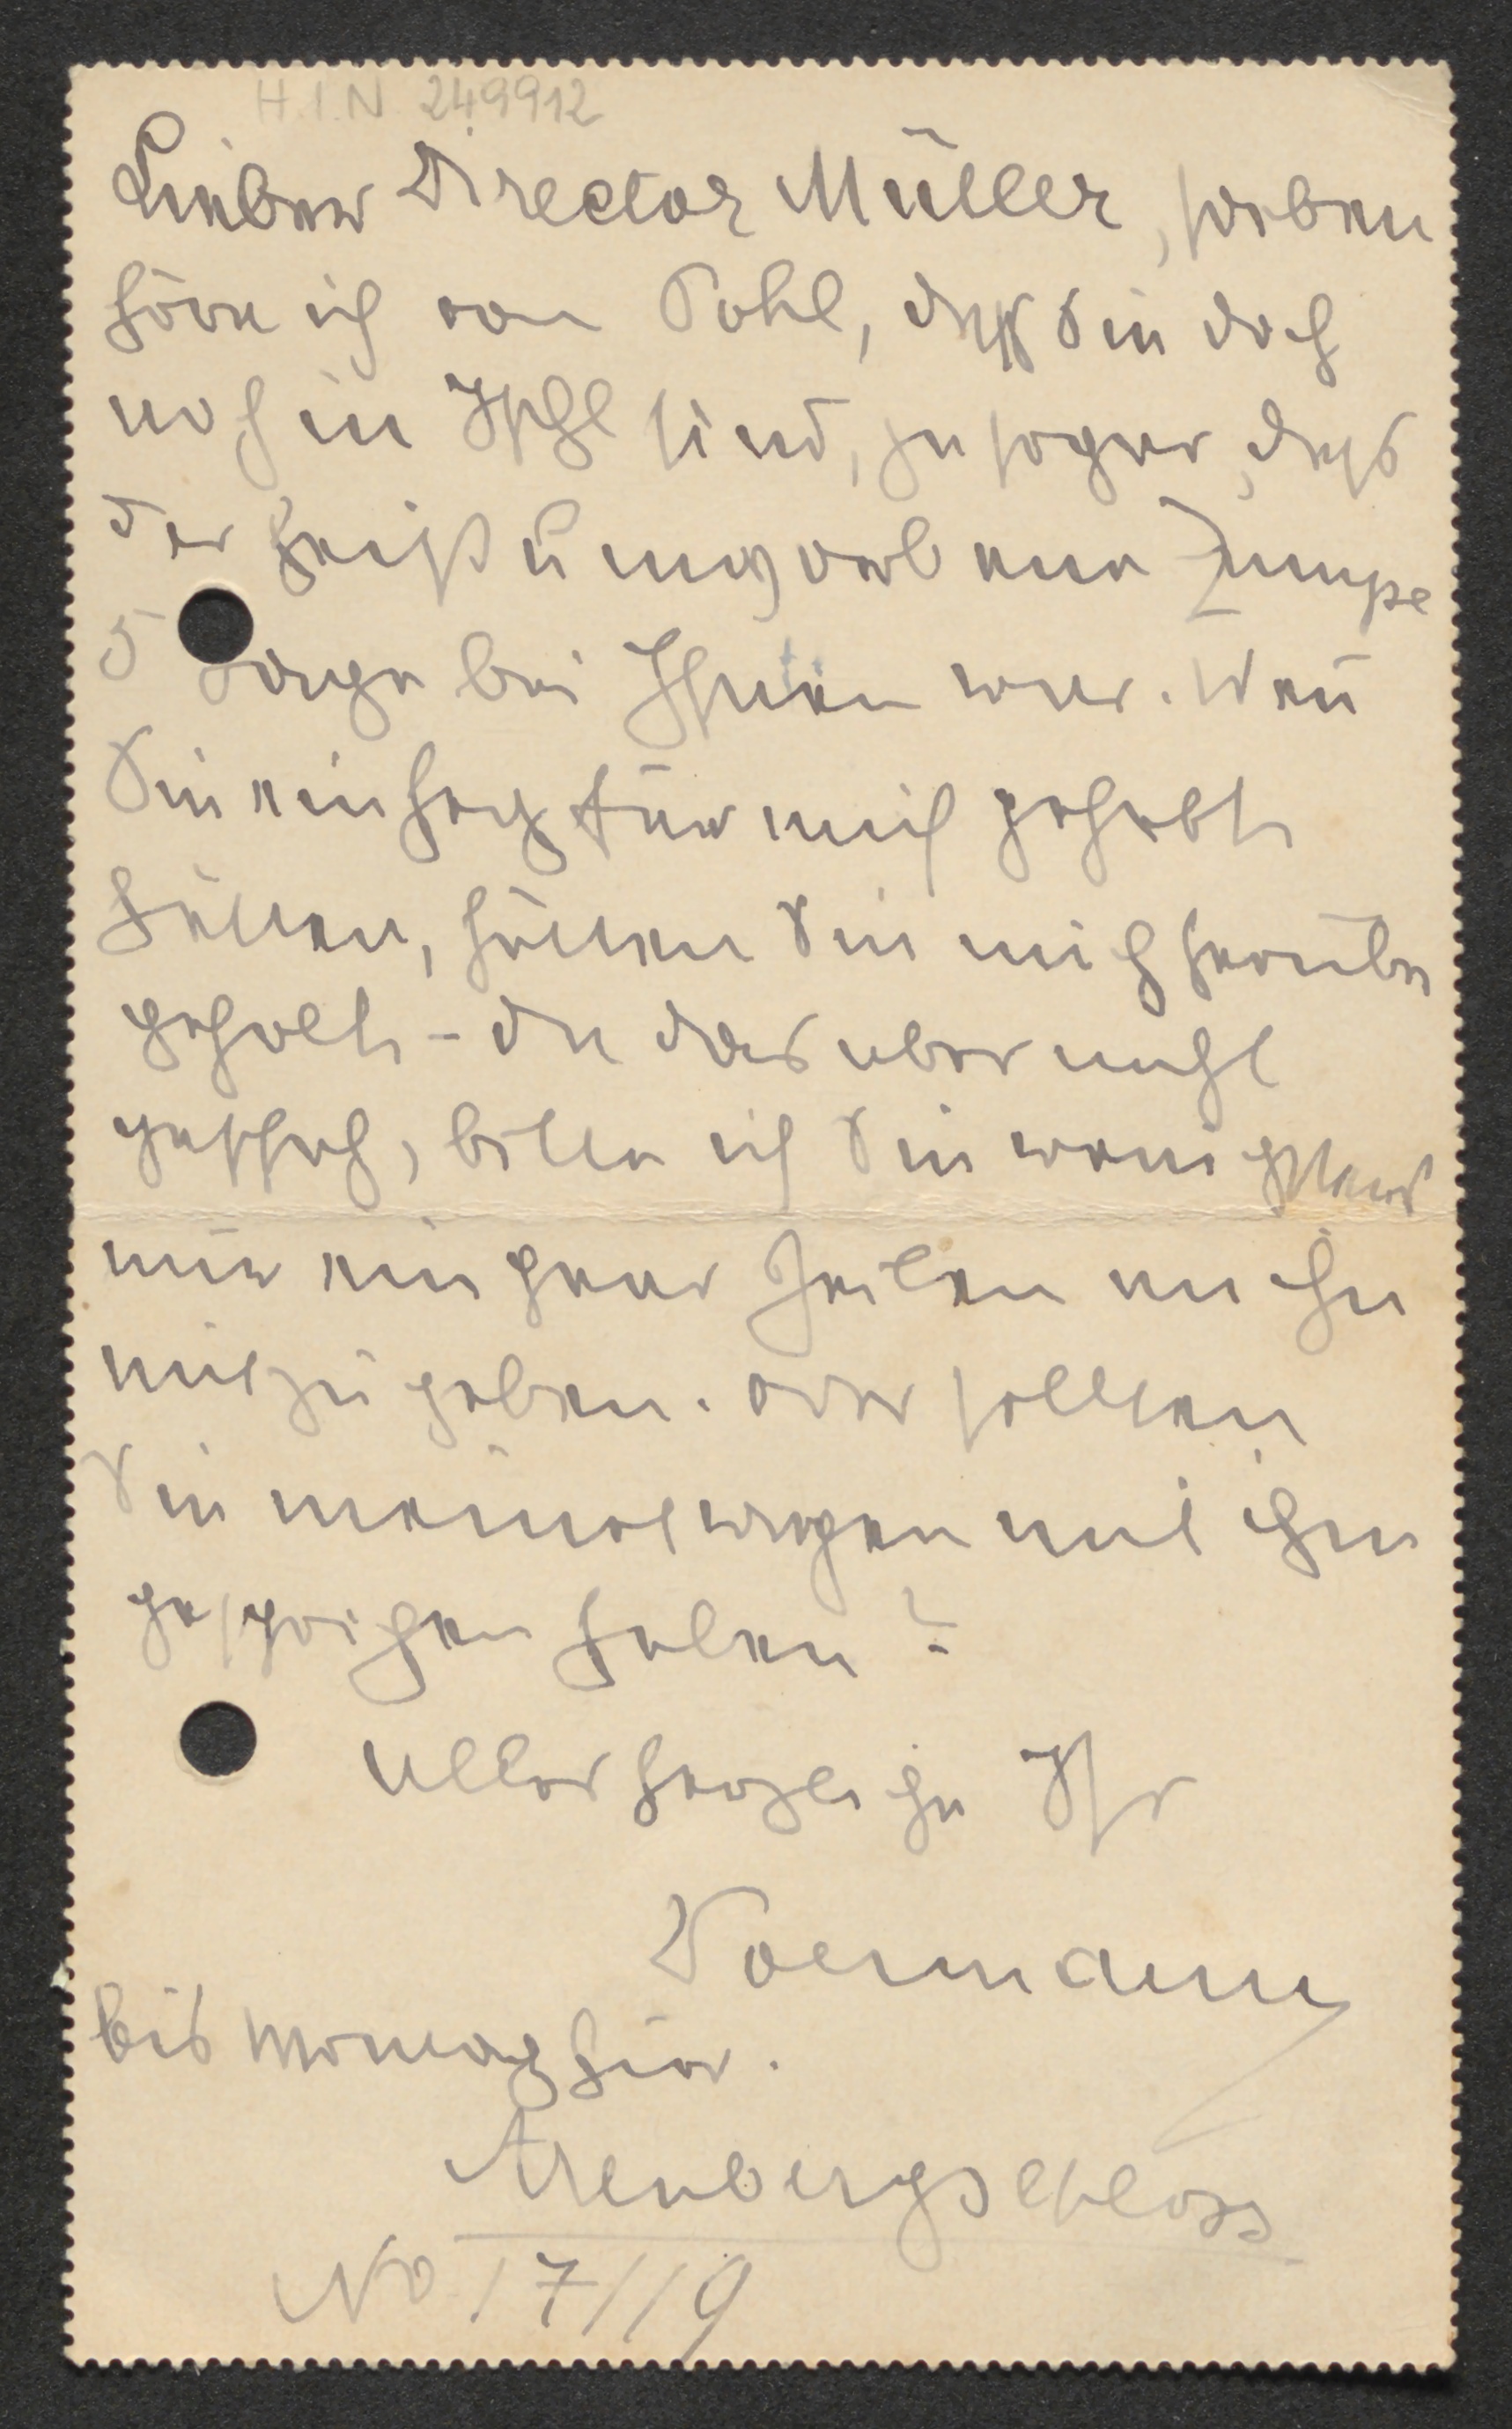 H.I.N. 249912
Lieber Director Müller, soeben
höre ich von Pohl, daß Sie doch
noch in Ischl sind, ja sogar, daß
der heiß umworbene Zumpe
5 Tage bei Ihnen war. Wen̄
Sie ein Herz für mich gehabt
hätten, hätten Sie mich herüber
geholt – da das aber nicht
geschah, bitte ich Sie wenigstens
mir ein paar Zeilen an ihn
mitzugeben. Oder sollten
Sie meinetwegen mit ihm
gesprochen haben?
Allerherzlichst Ihr
bis Montag hier.
Arenbergschloss
No 17/19